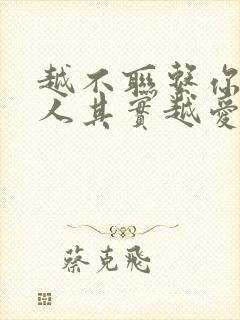 越不聯繫你
人其實越愛
蔡克飛